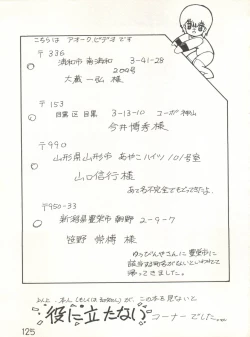 こちらは アオーク.ビデオ です
〒336
浦和市 南浦和 3-41-28
204号
大蔵一弘 様
〒153
目黒区 目黒 3-13-10 コーポ神山
今井博秀様
〒990
山形県山形市 あやこハイツ 101号室
山口信行 様
あて名不完全でもどってきたよ.
〒950-33
新潟県豊栄市 朝野 2-9-7
笹野 常樽 様
ゆうびんやさんに 豊栄市に
該当する町名がないといわれて
帰ってきました。
以上 本人(もしくは知り合い)が、この本を見ないと
役に立たない コーナーでした…
125